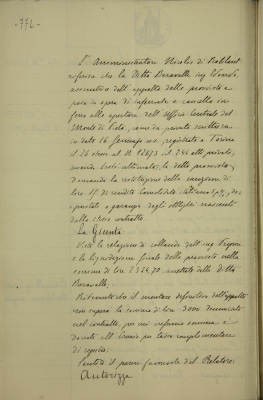 - 772 -
L'Amministratore Nicolis di Robilant
riferisce che la Ditta Baravelli ing.
assuntrice dell'appalto della provvista e
posa in opera di inferriate e cancello in
ferro alle aperture dell'Ufficio Centrale del
Monte di Pietà, come da privata scrittura
in data 16 Gennaio registrata a Torino
il 26 stesso al N. 12673
avendo testé ultimata la detta provvista
domanda la restituzione della cauzione di
lire 15 di rendita Consolidato italiano 5%, da
depositata a garanzia degli obblighi nascenti
dallo stesso contratto.
La Giunta
Vista la relazione di collaudo dell'ing.
e la liquidazione finale della provvista nella
somma di lire 1324,70 accettata dalla Ditta
Baravelli;
Ritenuto che il montare definitivo dell'appalto
non supera la somma di lire 3000 denunciata
nel contratto, per cui nessuna somma è
dovuta all'Erario per tassa complementare
di registro;
Sentito il parere favorevole del Relatore;
Autorizza